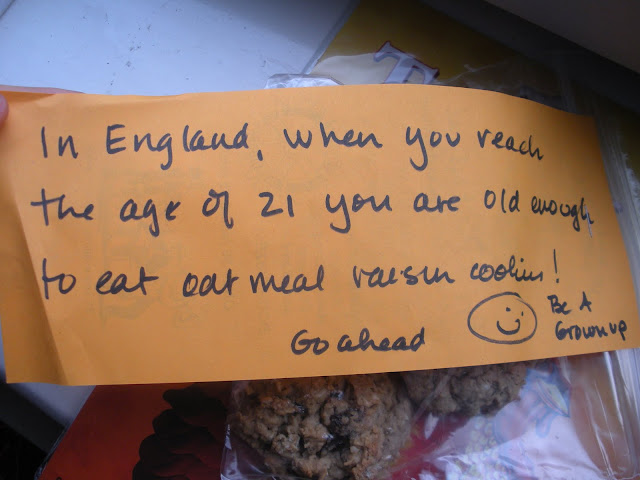 In England, when you reach
the age of 21 you are old enough
to eat oatmeal raisin cookies!
Go ahead
Be A
Grown up